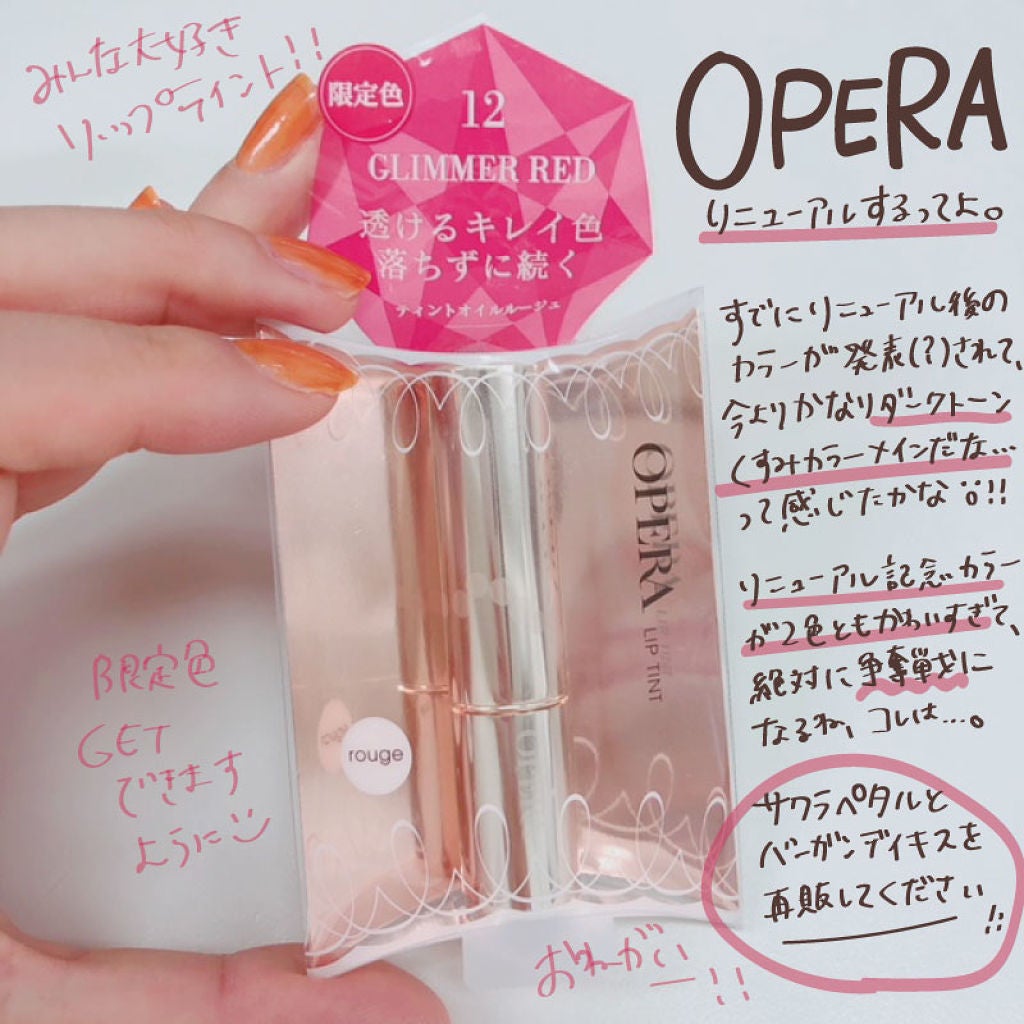 みんな大好き
リップティント!!
限定色
12
GLIMMER RED
透けるキレイ色
落ちずに続く
ティントオイルルージュ
OPERA
リニューアルするってよ。
すでにリニューアル後の
カラーが発表(?)されて、
今よりかなりダークトーン
くすみカラーメインだな...
って感じたかな!!
リニューアル記念カラー
が2色ともかわいすぎて、
絶対に争奪戦に
なるね、コレは...。
OPERA LIP TINT
rouge
限定色
GET
できます
ように
サクラペタルと
バーガンディキスを
再販してください!!
おねがいー!!